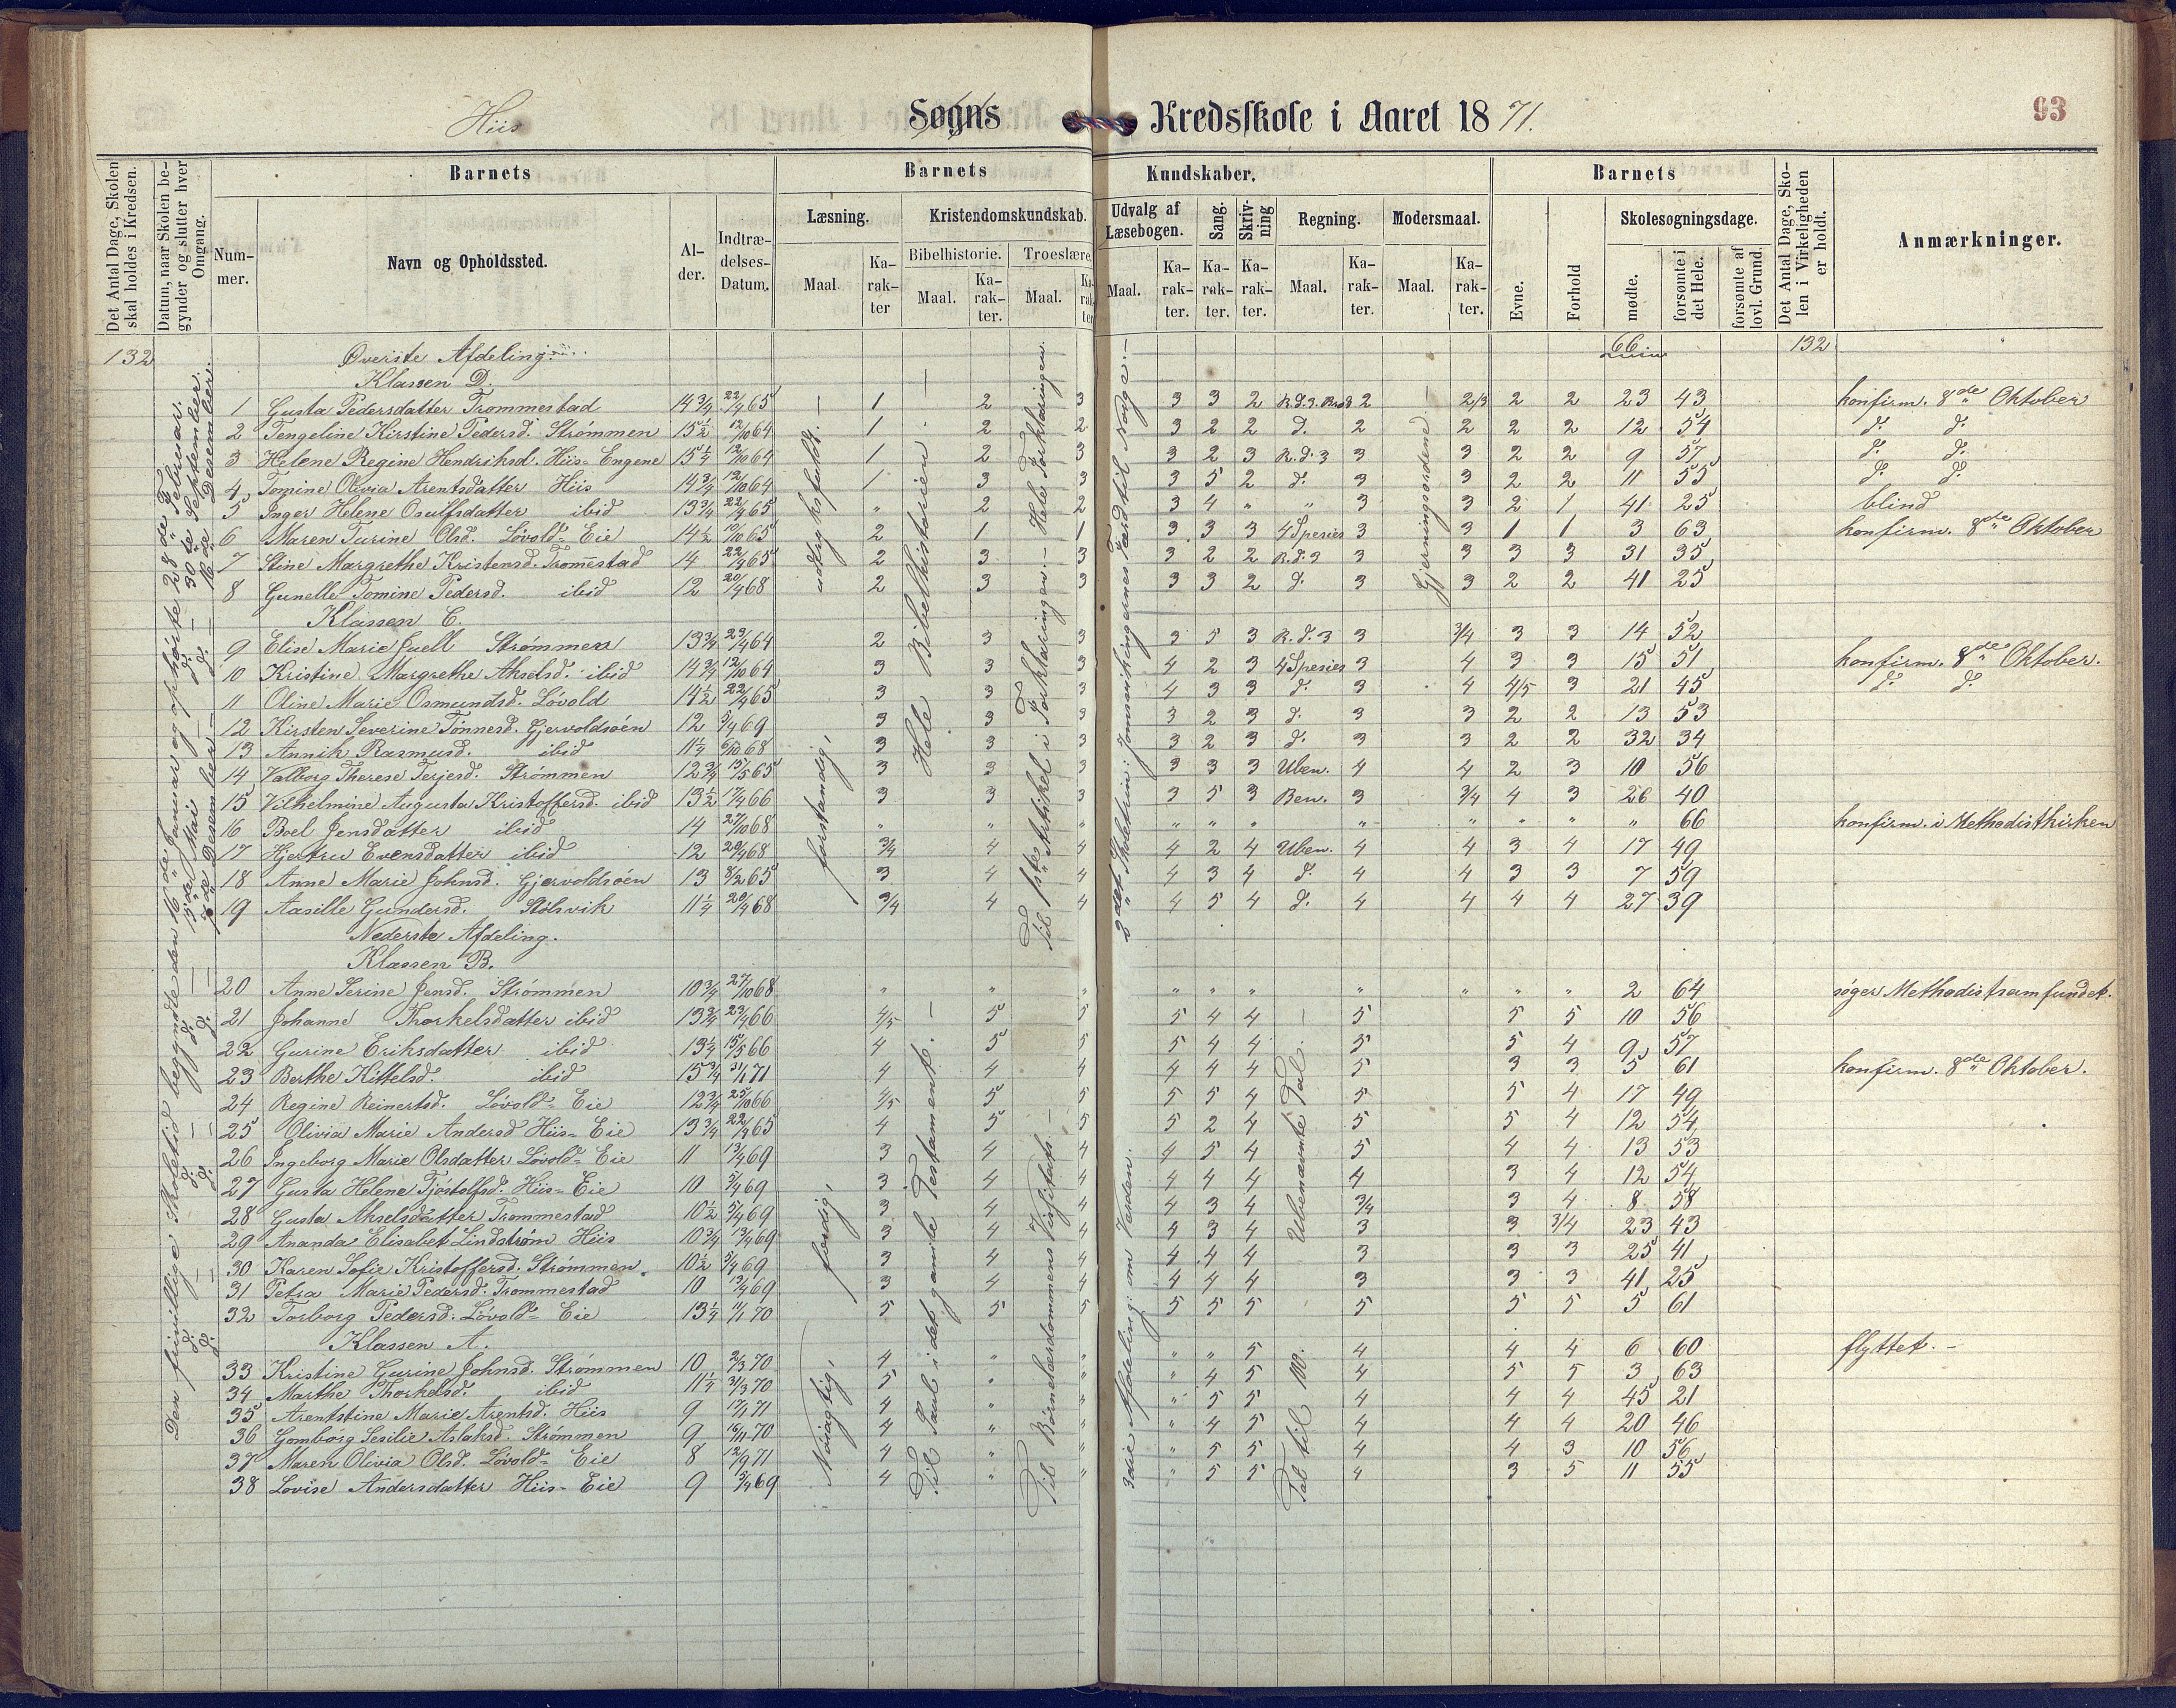 Hiis Sogns Kredsskole i Aaret 1871.
93
Det Antal Dage, Skolen skal holdes i Kredsen.
Datum, naar Skolen begynder og slutter hver Omgang.
Nummer.
Barnets
Navn og Opholdssted.
Alder.
Indtrædelses-Datum.
Barnets Kundskaber.
Læsning.
Maal.
Karakter
Kristendomskundskab.
Bibelhistorie.
Maal.
Karakter.
Troeslære.
Maal.
Karakter
Udvalg af Læsebogen.
Maal.
Karakter.
Sang.
Karakter.
Skrivning
Karakter.
Regning.
Maal.
Karakter.
Modersmaal.
Maal.
Karakter.
Barnets
Evne.
Forhold
Skolesøgningsdage.
mødte.
forsømte i det Hele.
forsømte af lovl. Grund.
Det Antal Dage, Skolen i Virkeligheden er holdt.
Anmærkninger.
132 Øverste Afdeling. 66 132
Klassen D.
1 Gusta Pedersdatter Trommestad 14 3/4 22/4 65 1 2 3 3 3 2 R.d.3. Brøk 2 2/3 2 2 23 43 konfirm. 8de Oktober
2 Tengeline Kirstine Pedersd. Strømmen 15 1/2 12/10 64 1 2 2 3 2 2 d. 2 2 2 2 12 54 d. d.
3 Helene Regine Hendriksd. Hiis-Engene 15 1/4 12/10 64 1 2 3 3 2 3 R.d.3 3 3 2 2 9 57 d. d.
4 Tomine Olivia Arentsdatter Hiis 14 3/4 12/10 64 1 3 3 3 5 2 d. 3 3 2 2 11 55 d. d.
5 Inger Helene Osulfsdatter ibid 13 3/4 22/4 65 " 2 2 3 4 " " 3 3 2 1 41 25 blind
6 Maren Turine Olsd. Løvold-Eie 14 1/2 10/10 65 2 1 1 3 3 3 4 Spesies 3 3 1 1 3 63 konfirm. 8de Oktober
7 Stine Margrethe Kristensd. Trommestad 14 22/4 65 2 3 3 3 2 2 R.d.3 3 3 3 3 31 35
8 Gunelle Tomine Pedersd. ibid 12 20/4 68 2 3 3 3 3 2 d. 3 3 2 2 41 25
Klassen C.
9 Elise Marie Juell Strømmen 13 3/4 23/4 64 2 3 3 3 5 3 R.d.3 3 3/4 3 3 14 52
10 Kristine Margrethe Akselsd. ibid 14 3/4 12/10 64 3 3 3 4 2 3 4 Spesies 3 4 3 3 15 51 konfirm. 8de Oktober.
11 Oline Marie Osmundsd. Løvold 14 1/2 22/4 65 3 3 3 4 3 3 d. 3 4 4/5 3 21 45 d. d.
12 Kirsten Severine Tønnesd. Gjervoldsøen 12 5/4 69 3 3 3 3 2 3 d. 3 3 2 2 13 53
13 Annik Rasmusd. ibid 11 1/4 6/10 68 3 3 3 3 2 3 d. 3 3 2 2 32 34
14 Valborg Therese Terjesd. Strømmen 12 3/4 15/5 65 3 3 3 3 3 3 Uben. 4 4 2 3 10 56
15 Vilhelmine Augusta Kristoffersd. ibid 13 1/2 17/4 66 3 3 3 3 5 3 Ben. 3 3/4 4 3 26 40
16 Boel Jensdatter ibid 14 27/10 68 " " " " " " " " " " " 66 konfirm. i Methodistkirken
17 Hjertru Evensdatter ibid 12 20/4 68 3/4 4 4 4 2 4 Uben. 4 4 3 4 17 49
18 Anne Marie Johnsd. Gjervoldsøen 13 8/2 65 3 4 4 4 3 4 d. 4 4 3 3 7 59
19 Aasille Gundersd. Stølsvik 11 1/4 20/4 68 3/4 4 4 4 5 4 d. 4 4 4 4 27 39
Nederste Afdeling.
Klassen B.
20 Anne Serine Jensd. Strømmen 10 3/4 27/10 68 " " " " " " " " " " 2 64 søger Methodistsamfundet.
21 Johanne Thorkelsdatter ibid 13 3/4 23/4 66 4/5 5 5 5 4 4 5 5 5 10 56
22 Gurine Eriksdatter ibid 13 1/4 15/5 66 4 5 5 5 4 4 5 5 4 9 57
23 Berthe Kittelsd. ibid 15 3/4 31/1 71 4 4 4 4 4 4 5 3 3 5 61 konfirm. 8de Oktober.
24 Regine Reinertsd. Løvold-Eie 12 3/4 25/10 66 4/5 5 5 5 5 4 5 5 4 17 49
25 Olivia Marie Andersd Hiis-Eie 13 3/4 22/4 65 4 5 5 5 2 4 5 5 4 12 54
26 Ingeborg Marie Olsdatter Løvold-Eie 11 13/4 69 3 4 4 4 5 4 5 4 4 13 53
27 Gusta Helene Tjøstolfsd. Hiis-Eie 10 5/4 69 3 4 4 4 4 4 4 3 4 12 54
28 Gusta Akselsdatter Trommestad 10 1/2 5/4 69 3 4 4 4 3 4 3/4 3 4 8 58
29 Ananda Elisabet Lindstrøm Hiis 10 3/4 13/4 69 3 4 4 4 3 4 3 3 3/4 23 43
30 Karen Sofie Kristoffersd. Strømmen. 10 1/2 5/4 69 3 4 4 4 4 4 3 3 3 25 41
31 Petra Marie Pedersd. Trommestad 10 13/4 69 3 4 4 4 4 4 3 3 3 41 25
32 Torborg Pedersd. Løvold-Eie 13 1/4 11/1 70 5 5 5 5 5 5 5 5 5 5 61
Klassen A.
33 Kristine Gurine Johnsd. Strømmen 10 2/3 70 4 " " " " 5 4 4 4 6 60 flyttet.-
34 Marthe Thorkelsd. ibid 11 1/4 31/3 70 5 " " " 4 5 4 5 5 3 63
35 Arentstine Marie Arentsd. Hiis 9 17/1 71 4 " " " 5 5 4 4 4 45 21
36 Gomborg Sesilie Aslaksd. Strømmen 9 16/11 70 4 " " " 4 5 4 4 4 20 46
37 Maren Olivia Olsd. Løvold-Eie 8 12/9 71 4 " " " 5 5 4 4 3 10 56
38 Lovise Andersdatter Hiis-Eie 9 5/4 69 4 " " " 5 5 4 3 5 11 55
Den frivillige Skoletid begyndte den 16de Januar og ophørte 28de Februar.
d. d. 15de Mai 30te September.
d. d. 7de Desember 16de Desember.
udtryksfuldt.
forstandig,
færdig,
Nøiagtig,
Hele Bibelhistorien.
Til Saul i det gamle Testamente.
Til 1ste Artikel i Forklaringen. - Hele Forklaringen.
Til Børnelærdommens Visfitats
2det Skoletrin: Jomsvikingernes Færd til Norge.
3die Afdeling: om Verden.
Ubenævnte Tal.
Tal til 100.
Gjerningsordene